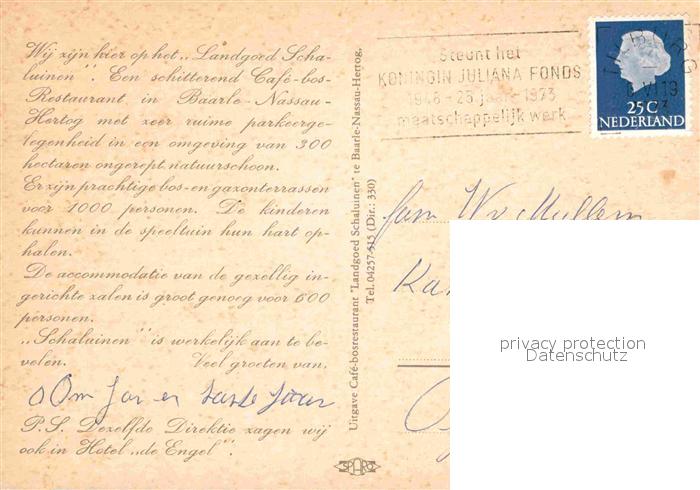 Wij zijn hier op het „Landgoed Scha-
luinen". Een schitterend Café-bos-
Restaurant in Baarle-Nassau-
Hertog met zeer ruime parkeerge-
legenheid in een omgeving van 300
hectaren ongerept natuurschoon.
Er zijn prachtige bos- en gazonterrassen
voor 1000 personen. De kinderen
kunnen in de speeltuin hun hart op-
halen.
De accommodatie van de gezellig in-
gerichte zalen is groot genoeg voor 600
personen.
„Schaluinen" is werkelijk aan te be-
velen. Veel groeten van.
Om Jan en tante
P.S. Dezelfde Direktie zagen wij
ook in Hotel „de Engel".
Uitgave Café-bosrestaurant "Landgoed Schaluinen" te Baarle-Nassau-Hertog,
Tel. 04257-515 (Dir.: 330)
SPARO
Steunt het
KONINGIN JULIANA FONDS
1948 - 25 jaar - 1973
maatschappelijk werk
TILBURG
25C
NEDERLAND
Fam. W v Mullem
privacy protection
Datenschutz